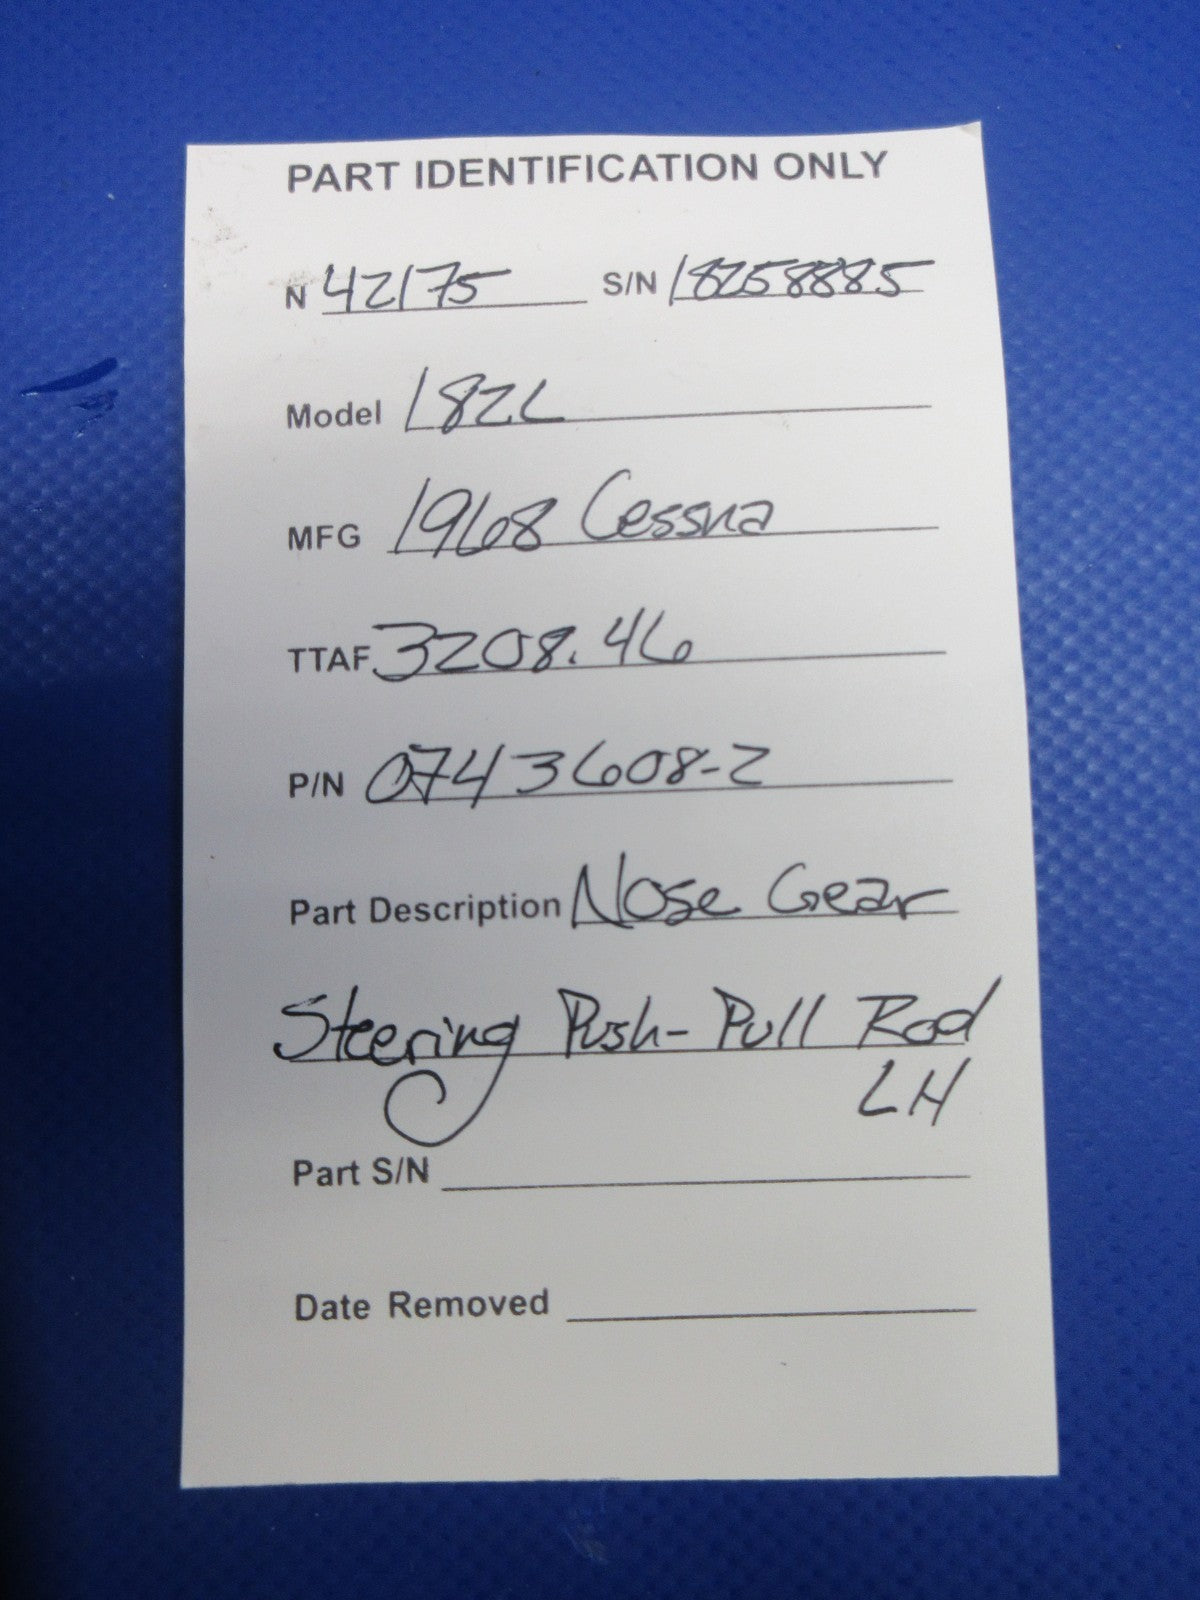 PART IDENTIFICATION ONLY
N 42175 S/N 18258885
Model 182L
MFG 1968 Cessna
TTAF 3208.46
P/N 0743608-2
Part Description Nose Gear
Steering Push-Pull Rod
LH
Part S/N
Date Removed